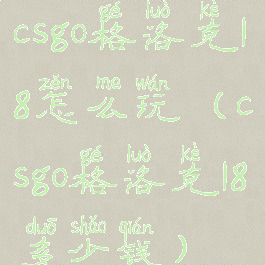 gé luò kè
csgo格洛克1
zěn me wán
8怎么玩（c
gé luò kè
sgo格洛克18
duō shǎo qián
多少钱）